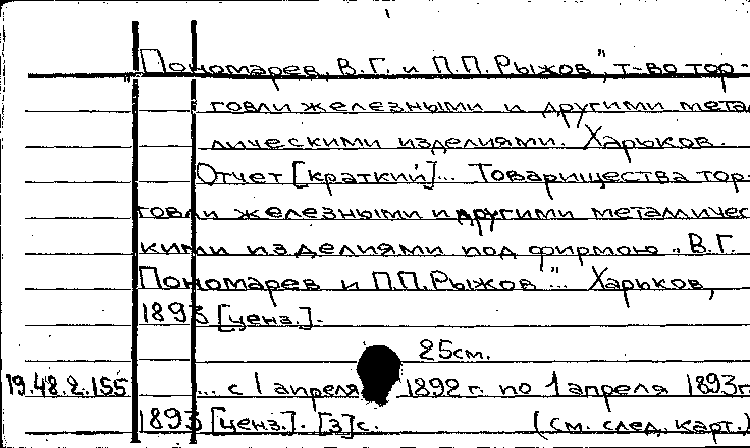 „Пономарев, В.Г. и П.П. Рыжов", т-во тор-
говли железными и другими метал
лическими изделиями. Харьков.
Отчет [краткий]... Товарищества тор-
говли железными и другими металличес
кими изделиями под фирмою „В.Г.
Пономарев и П.П. Рыжов"... Харьков,
1893 [ценз.].
25см.
19.48.2.155 ... с 1 апреля 1892 г. по 1 апреля 1893г
1893 [ценз.]. [3]с. (см. след. карт.)